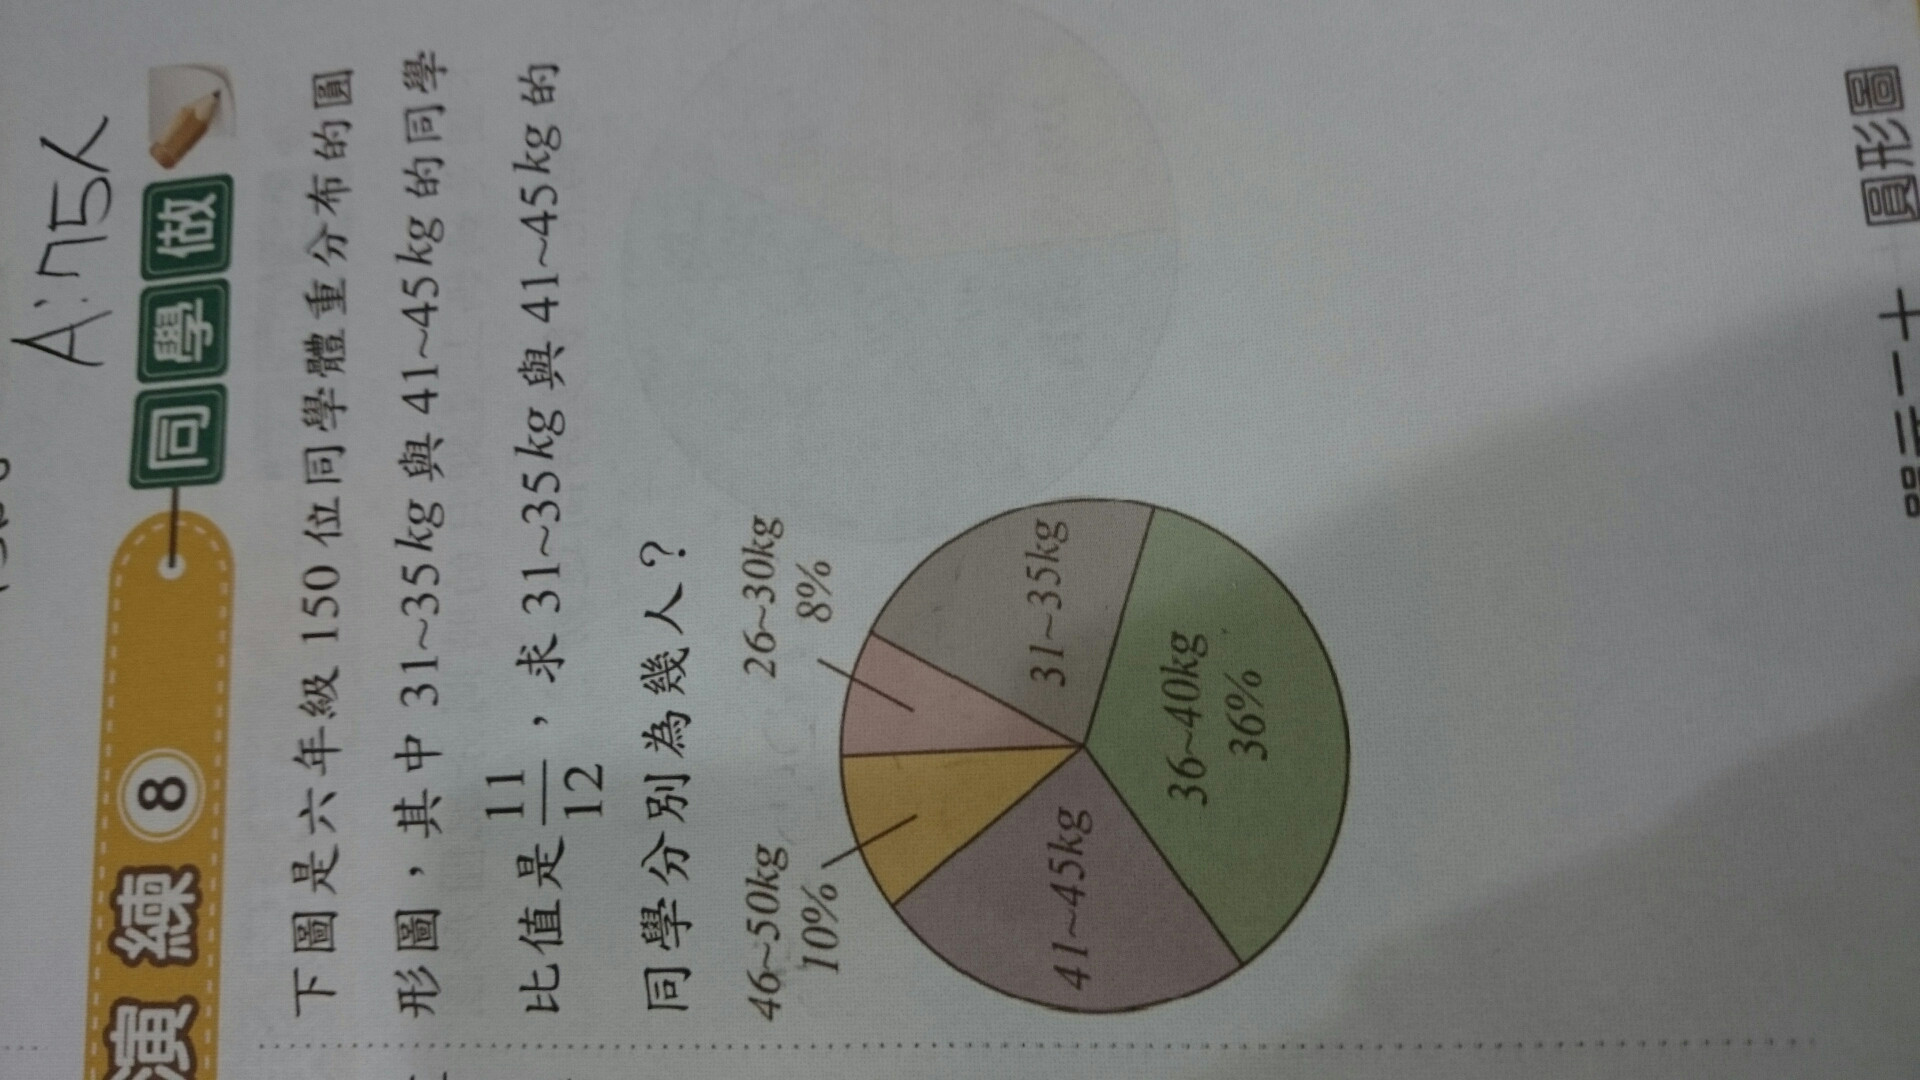 A:75人
演練 8 同學做
下圖是六年級150位同學體重分布的圓
形圖，其中31~35kg與41~45kg的同學
比值是11/12，求31~35kg與41~45kg的
同學分別為幾人？
46~50kg
10%
26~30kg
8%
31~35kg
41~45kg
36~40kg
36%
單元二十 圓形圖